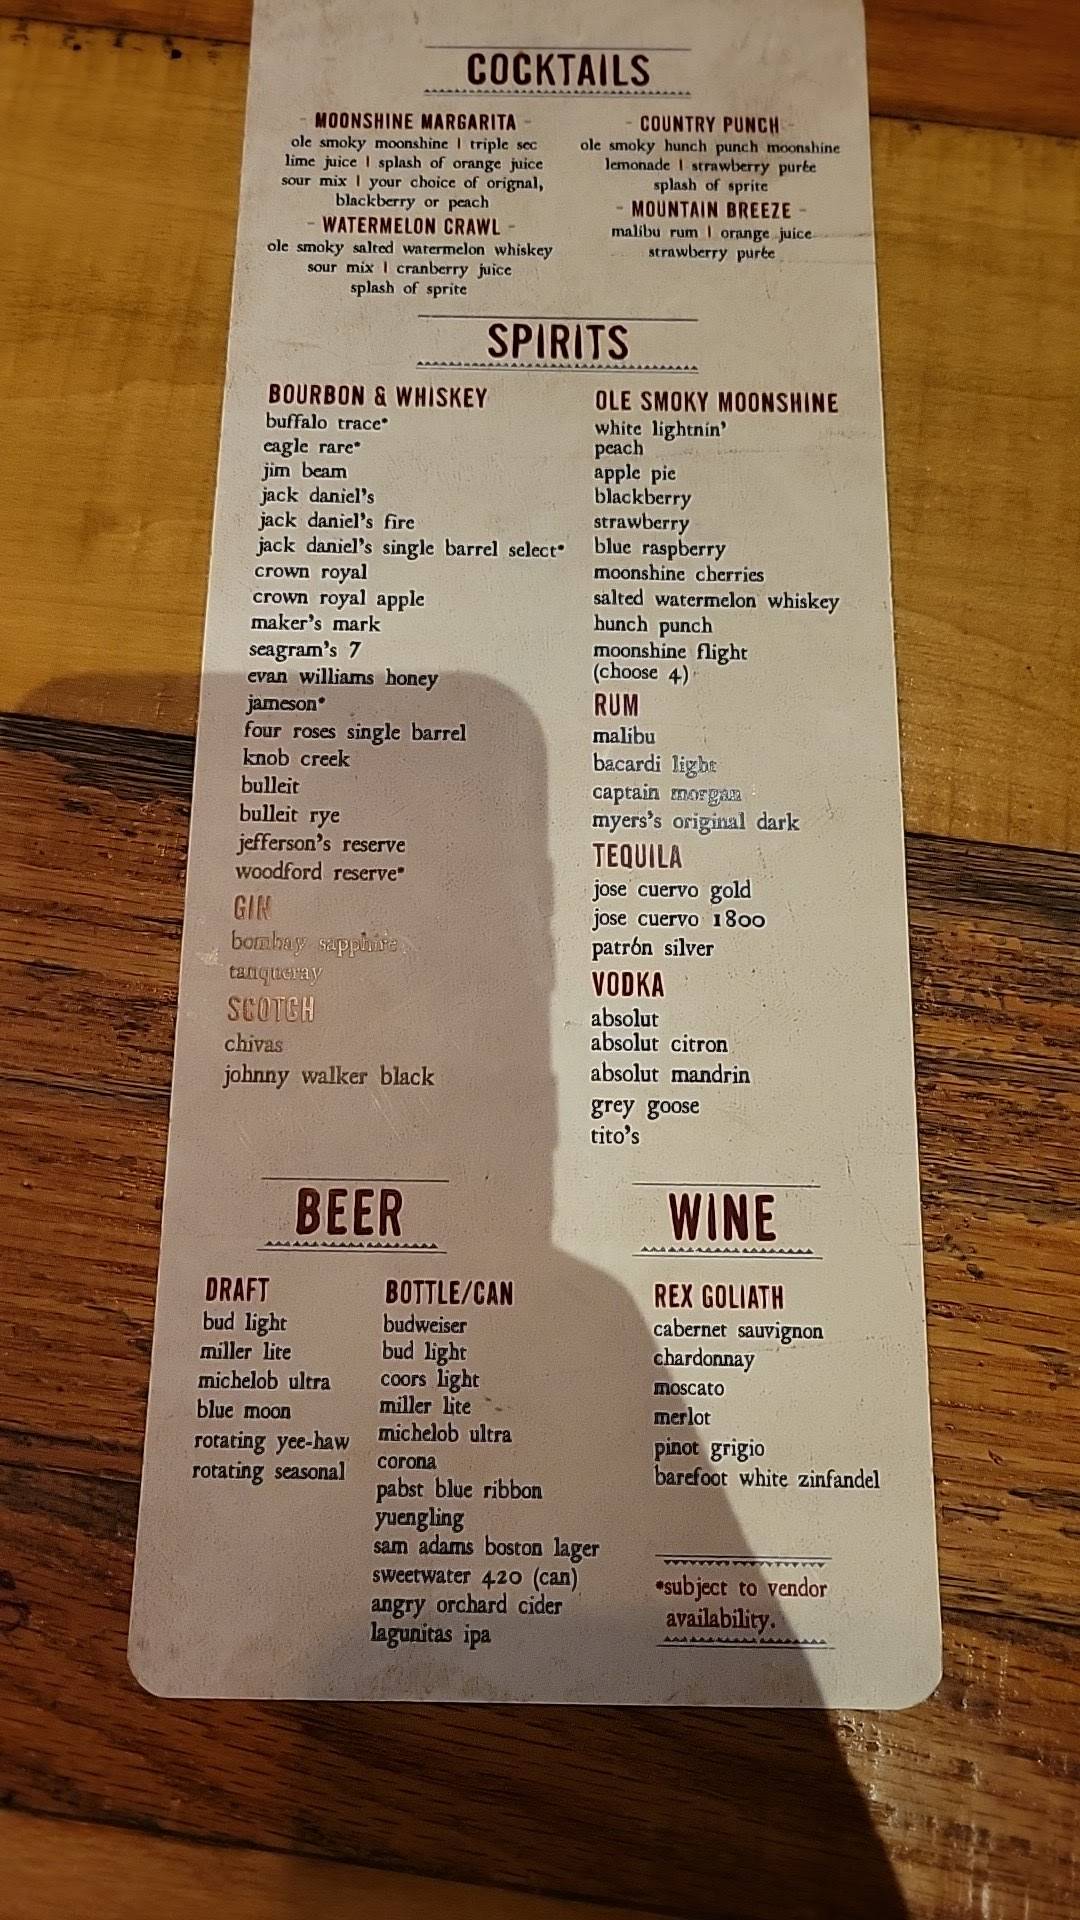 COCKTAILS
- MOONSHINE MARGARITA -
ole smoky moonshine | triple sec
lime juice | splash of orange juice
sour mix | your choice of orignal,
blackberry or peach
- WATERMELON CRAWL -
ole smoky salted watermelon whiskey
sour mix | cranberry juice
splash of sprite
- COUNTRY PUNCH -
ole smoky hunch punch moonshine
lemonade | strawberry purée
splash of sprite
- MOUNTAIN BREEZE -
malibu rum | orange juice
strawberry purée
SPIRITS
BOURBON & WHISKEY
buffalo trace*
eagle rare*
jim beam
jack daniel's
jack daniel's fire
jack daniel's single barrel select*
crown royal
crown royal apple
maker's mark
seagram's 7
evan williams honey
jameson*
four roses single barrel
knob creek
bulleit
bulleit rye
jefferson's reserve
woodford reserve*
GIN
bombay sapphire
tanqueray
SCOTCH
chivas
johnny walker black
OLE SMOKY MOONSHINE
white lightnin'
peach
apple pie
blackberry
strawberry
blue raspberry
moonshine cherries
salted watermelon whiskey
hunch punch
moonshine flight
(choose 4)
RUM
malibu
bacardi light
captain morgan
myers's original dark
TEQUILA
jose cuervo gold
jose cuervo 1800
patrón silver
VODKA
absolut
absolut citron
absolut mandrin
grey goose
tito's
BEER
DRAFT
bud light
miller lite
michelob ultra
blue moon
rotating yee-haw
rotating seasonal
BOTTLE/CAN
budweiser
bud light
coors light
miller lite
michelob ultra
corona
pabst blue ribbon
yuengling
sam adams boston lager
sweetwater 420 (can)
angry orchard cider
lagunitas ipa
WINE
REX GOLIATH
cabernet sauvignon
chardonnay
moscato
merlot
pinot grigio
barefoot white zinfandel
*subject to vendor
availability.